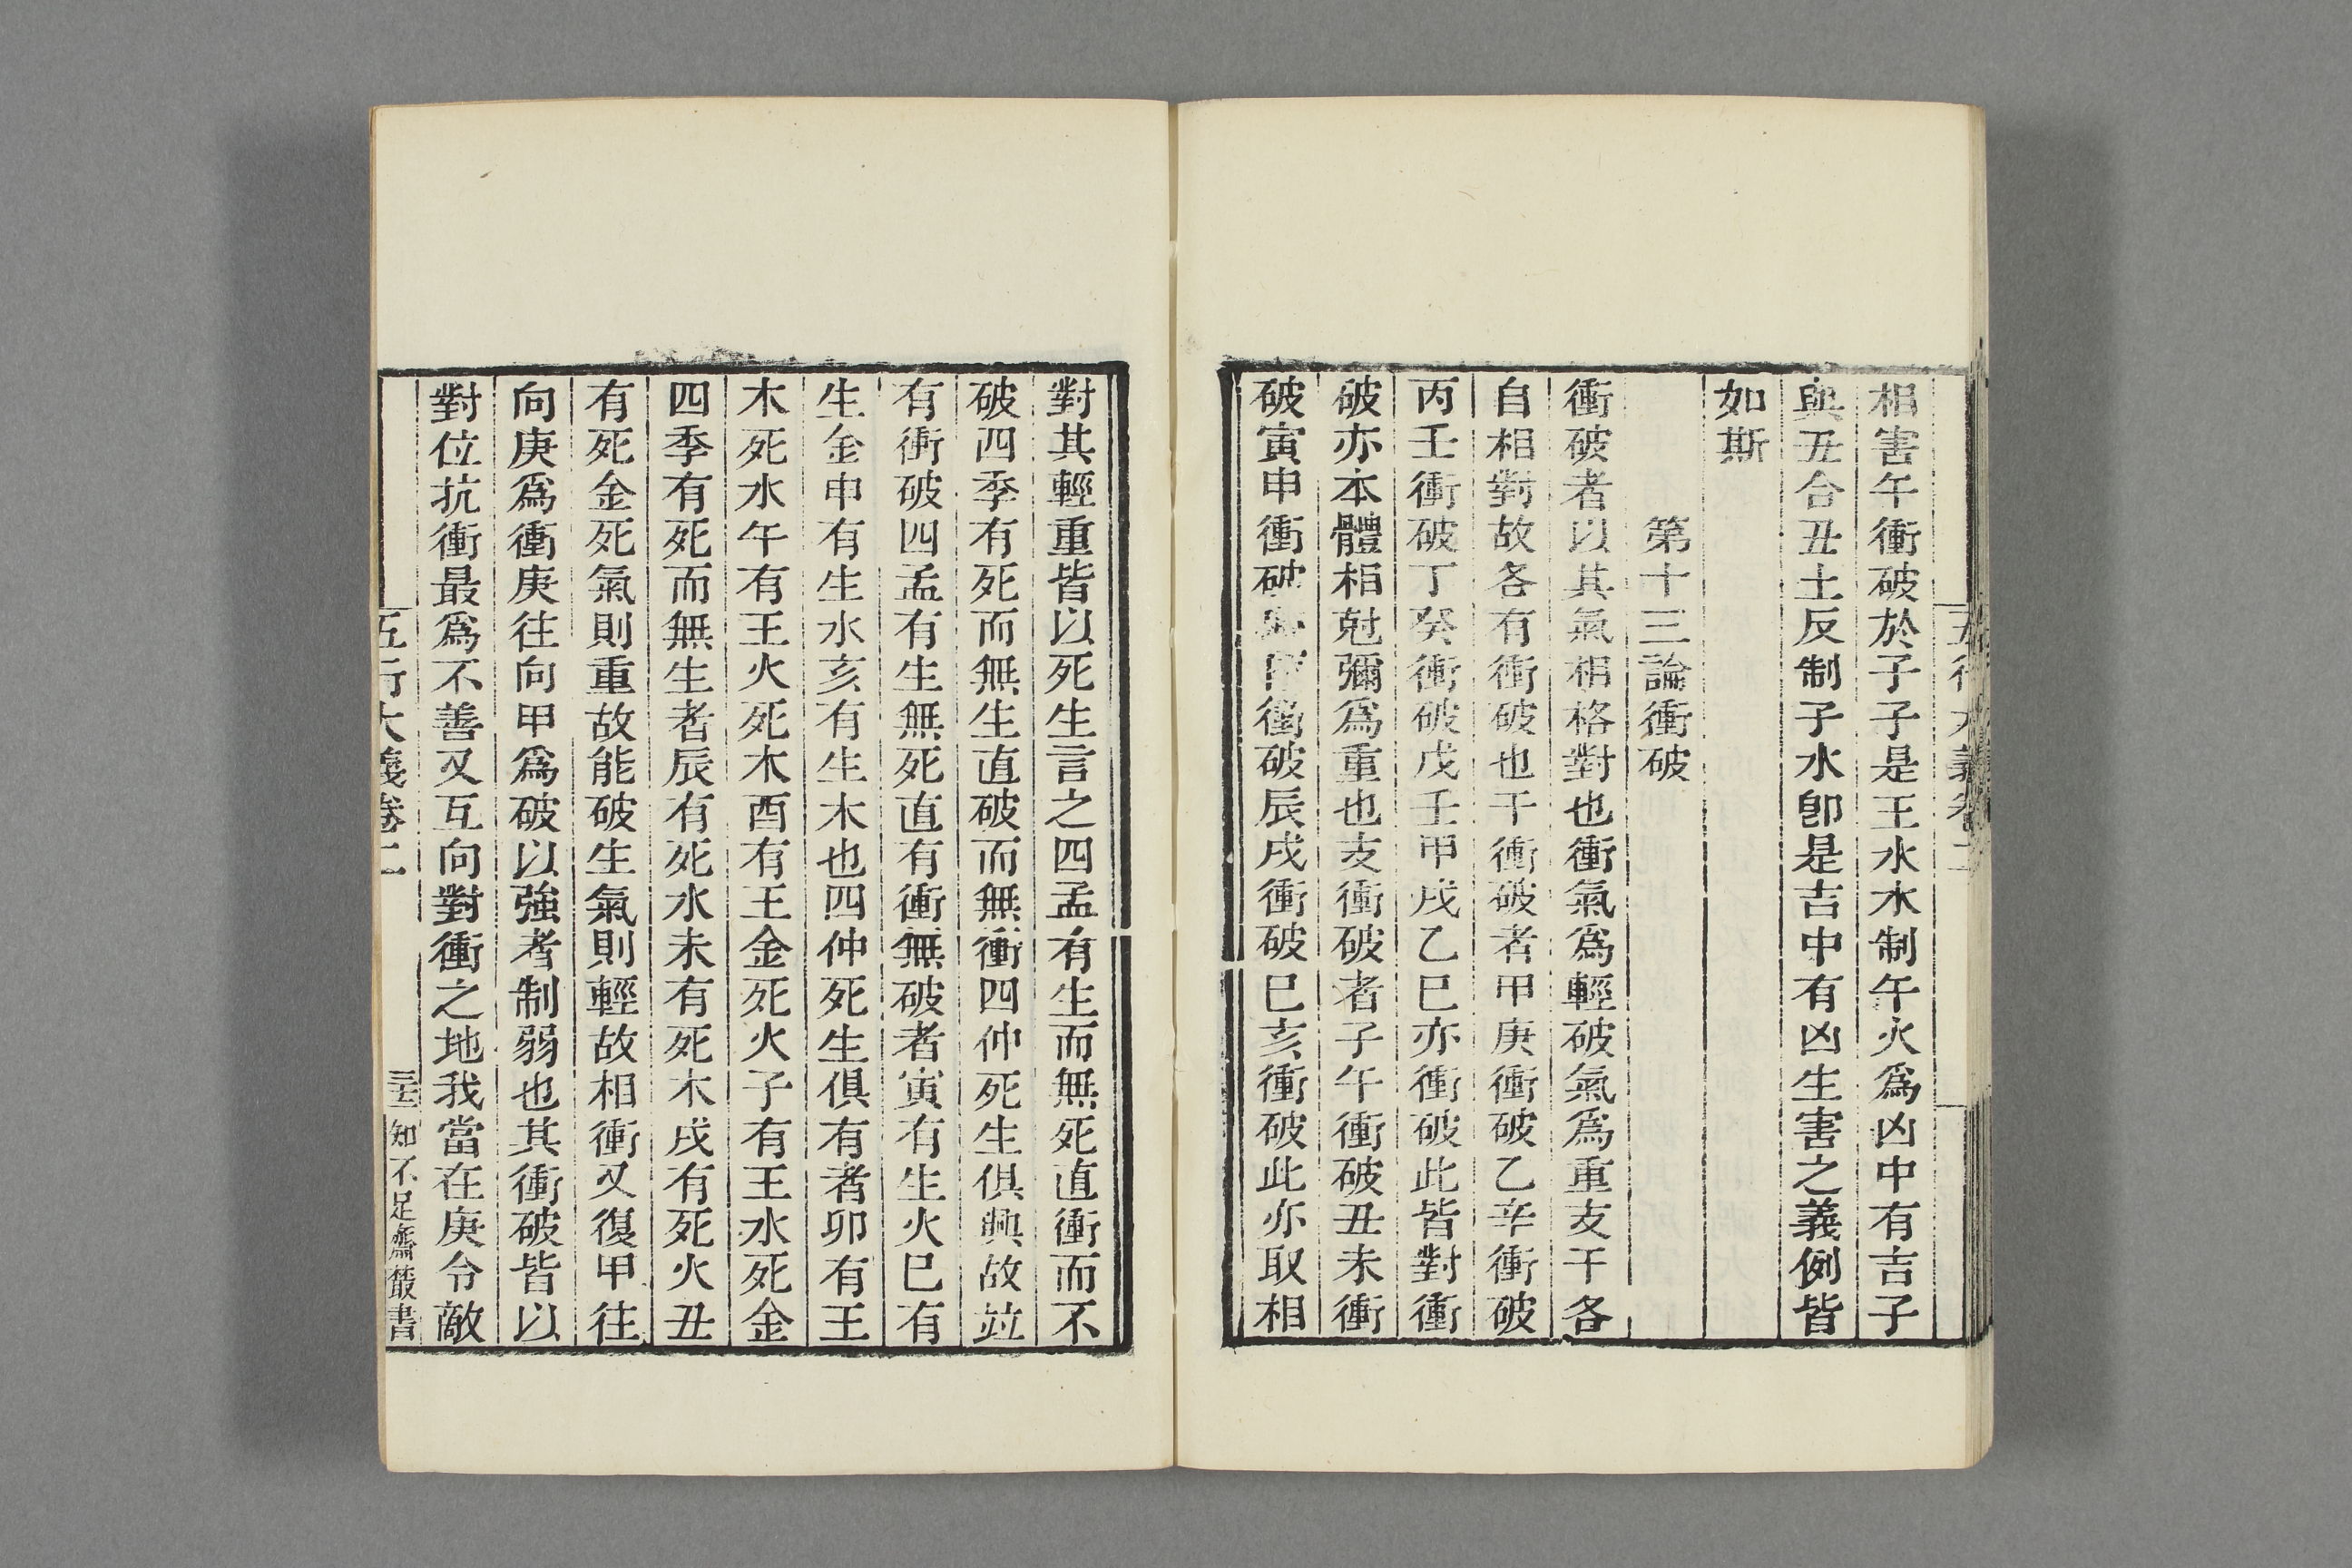 相害午衝破於子子是王水水制午火爲凶中有吉子
與丑合丑土反制子水卽是吉中有凶生害之義例皆
如斯
第十三論衝破
衝破者以其氣相格對也衝氣爲輕破氣爲重支干各
自相對故各有衝破也干衝破者甲庚衝破乙辛衝破
丙壬衝破丁癸衝破戊壬甲戌乙巳亦衝破此皆對衝
破亦本體相尅彌爲重也支衝破者子午衝破丑未衝
破寅申衝破衝破辰戌衝破巳亥衝破此亦取相
對其輕重皆以死生言之四孟有生而無死直衝而不
破四季有死而無生直破而無衝四仲死生俱興故竝
有衝破四孟有生無死直有衝無破者寅有生火巳有
生金申有生水亥有生木也四仲死生俱有者卯有王
木死水午有王火死木酉有王金死火子有王水死金
四季有死而無生者辰有死水未有死木戌有死火丑
有死金死氣則重故能破生氣則輕故相衝又復甲往
向庚爲衝庚往向甲爲破以強者制弱也其衝破皆以
對位抗衝最爲不善又互向對衝之地我當在庚令敵
五行大義卷二
知不足齋叢書